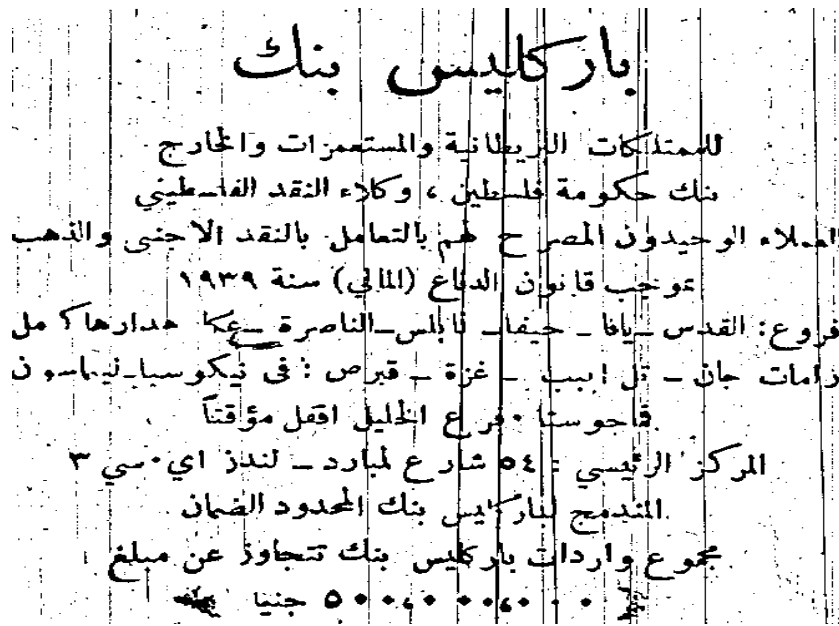 باركليس بنك
للممتلكات البريطانية والمستعمرات والخارج
بنك حكومة فلسطين ، وكلاء النقد الفلسطيني
العملاء الوحيدون المصرح لهم بالتعامل بالنقد الاجنبي والذهب
بموجب قانون الدفاع (المالي) سنة ١٩٣٩
فروع: القدس ـ يافا ـ حيفا ـ نابلس ـ الناصرة ـ عكا هدارها كرمل
رامات جان ـ تل ابيب ـ غزة ـ قبرص : في نيكوسيا ـ ليماسون
فاجوستا ٠ فرع الخليل اقفل مؤقتاً
المركز الرئيسي : ٥٤ شارع لمبارد ـ لندز اي٠سي ٣
المندمج لباركليس بنك المحدود الضمان
مجموع واردات باركليس بنك تتجاوز عن مبلغ
جنيا